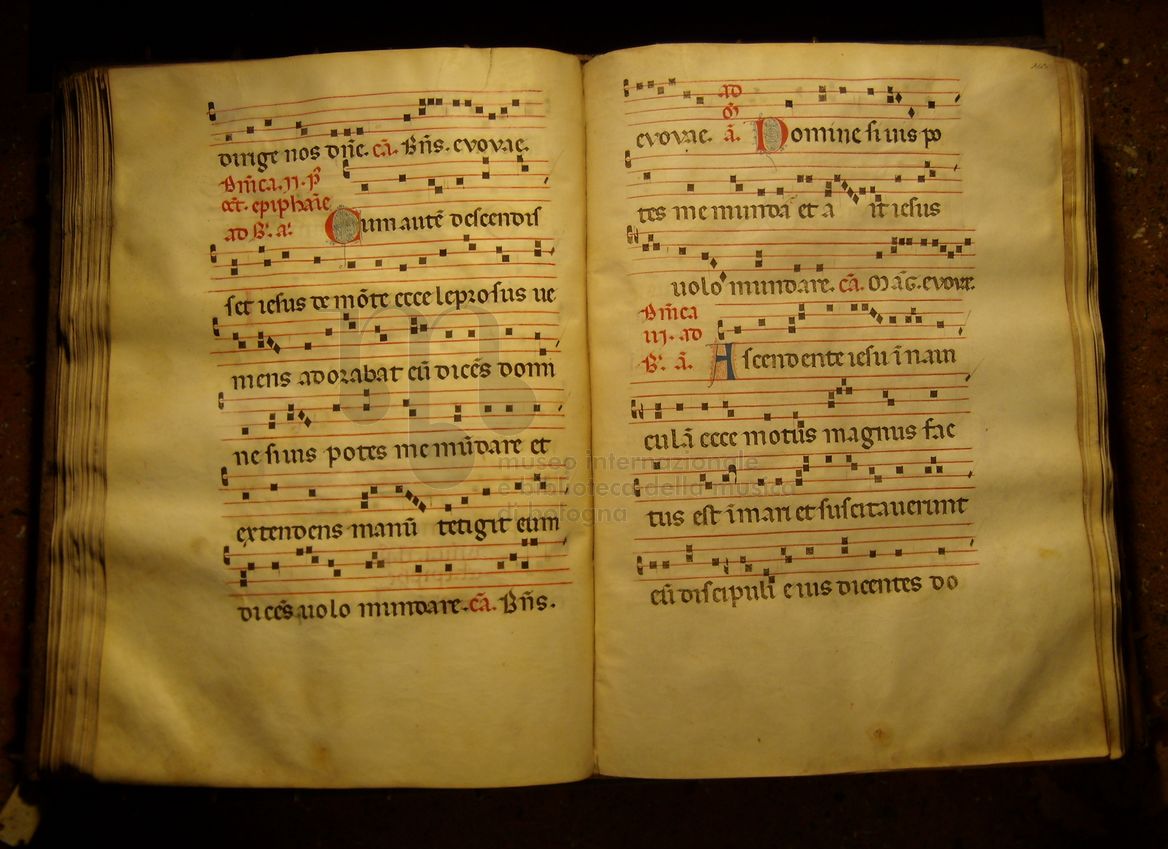 dirige nos dn̄e. cā. Bn̄s. evovae.
Dn̄ica. ıı. p̄
oct. epiphanīe
ad B'. a'.
Cum autē descendis
set iesus de mōte ecce leprosus ue
niens adorabat eū dicēs domi
ne si uis potes me mūdare et
extendens manū tetigit eum
dicēs uolo mundare. cā. Bn̄s.
evovae. ad
ā.
Domine si uis po
tes me mundā et a it iesus
uolo mundare. cā. Māg. evovae.
Dn̄ica
ııı. ad
B'. ā.
Ascendente iesu ī naui
culā ecce motus magnus fac
tus est ī mari et suscitauerunt
eū discipuli eius dicentes do
museo internazionale
e biblioteca della musica
di bologna